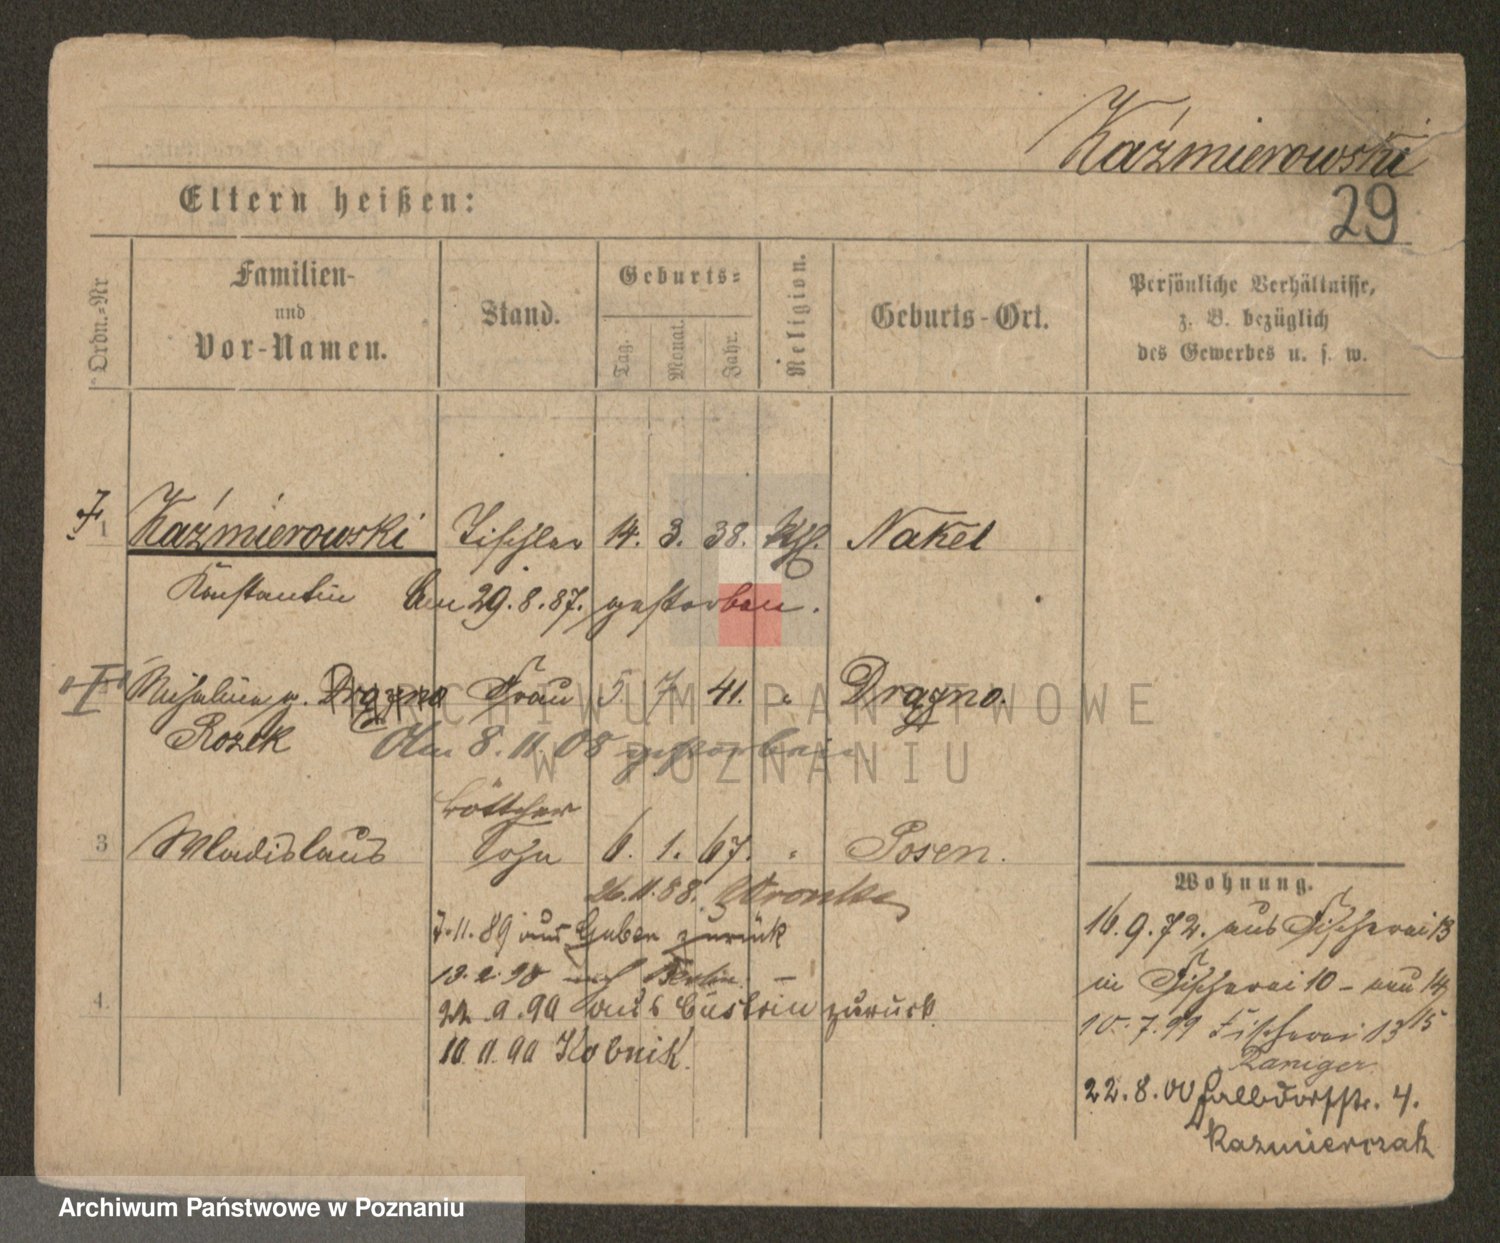 Kaźmierowski
29
Eltern heißen:
Ordn.-Nr
Familien-
und
Vor-Namen.
Stand.
Geburts-
Tag.
Monat.
Jahr.
Religion.
Geburts-Ort.
Persönliche Verhältnisse,
z. B. bezüglich
des Gewerbes u. s. w.
1 Kaźmierowski Tischler 14. 3. 38. Kth. Nakel
Konstantin Am 29.8.87. gestorben.
Frau 5. 7. 41. "
Rozek Am 8.11.08 gestorben
ARCHIWUM PAŃSTWOWE
W POZNANIU
Böttcher
3 Wladislaus Sohn 6. 1. 67. " Posen.
26.11.88. Wronke
7.11.89 aus Guben zurück
13.2.90 nach Berlin
4. 22.9.90 aus Cüstrin zurück
10.11.90 Kobnik.
Wohnung.
16.9.72. aus Fischerei 13
in Fischerei 10 - nun 14
10.7.99 Fischerei 13/15
22.8.00 Halbdorfstr. 4.
Kazmierczak
Archiwum Państwowe w Poznaniu